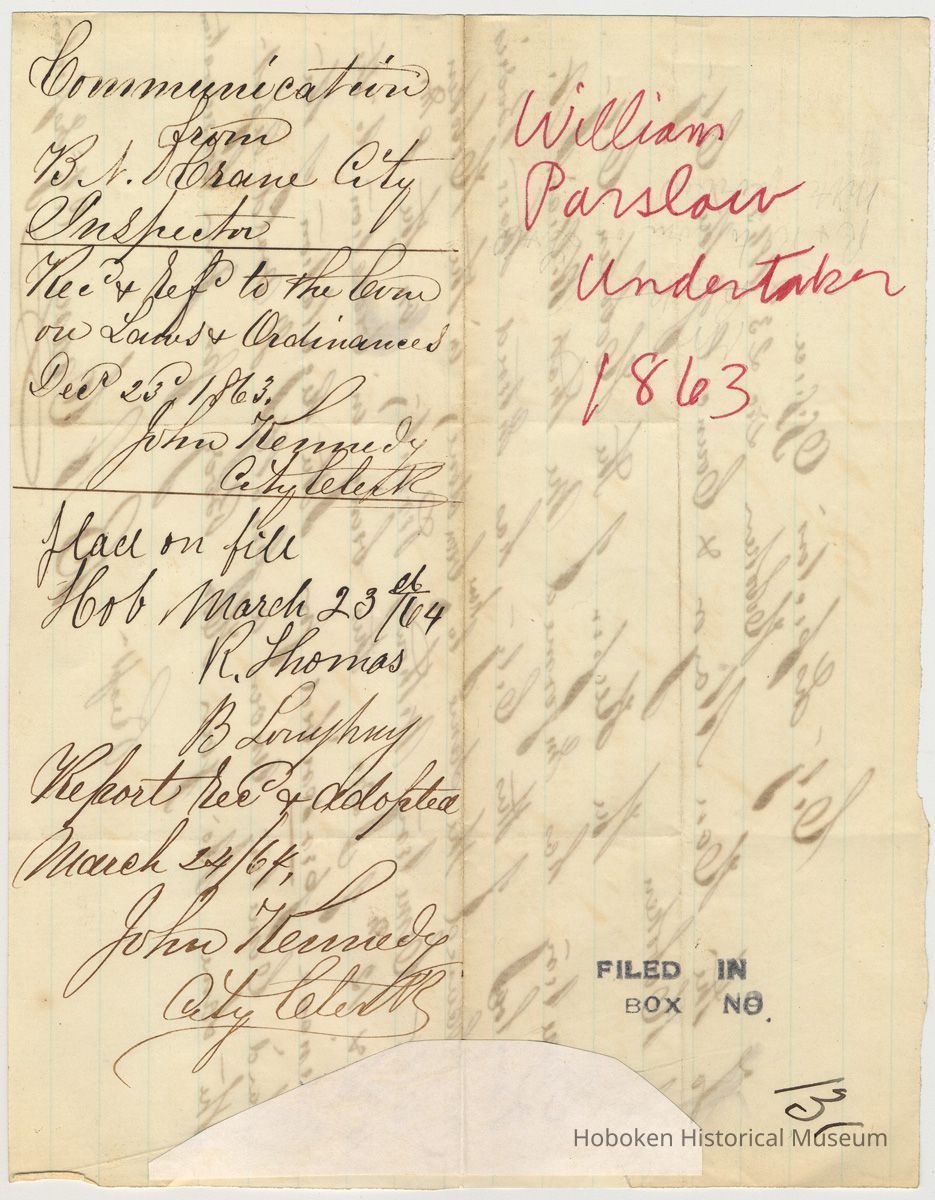 Communication
from
B. N. Crane City
Inspector
Rec^d & Ref^d to the Com
on Laws & Ordinances
Dec^r 23^d, 1863.
John Kennedy
City Clerk
Plaed on file
Hob March 23^d /64
R. Thomas
B Loughry
Report Rec^d & adopted
March 24/64,
John Kennedy
City Clerk
William
Parslow
Undertaker
1863
FILED IN
BOX NO.
Hoboken Historical Museum